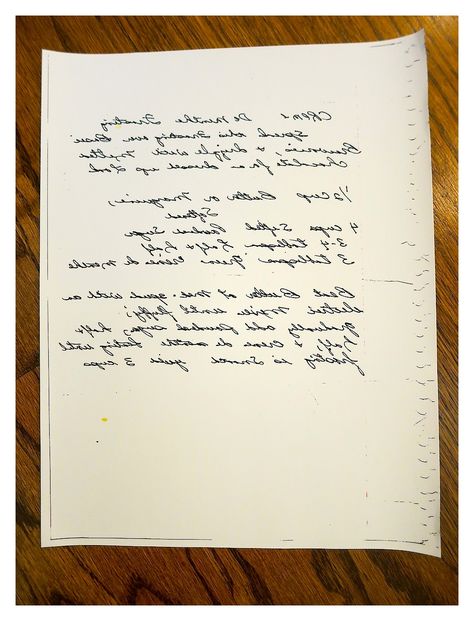 Creme De Menthe Frosting
Spread this Frosting over Basic
Brownies & drizzle with melted
chocolate for a dressed up look
1/2 cup Butter or Margarine,
Softened
4 cups Sifted Powdered Sugar
3-4 Tablespoon Half & Half
3 Tablespoon Green Creme de Menthe
Beat Butter at Med. speed with an
electric Mixer until fluffy;
gradually add powdered sugar, half &
half, & Creme de menthe beating until
frosting is smooth yield 3 cups